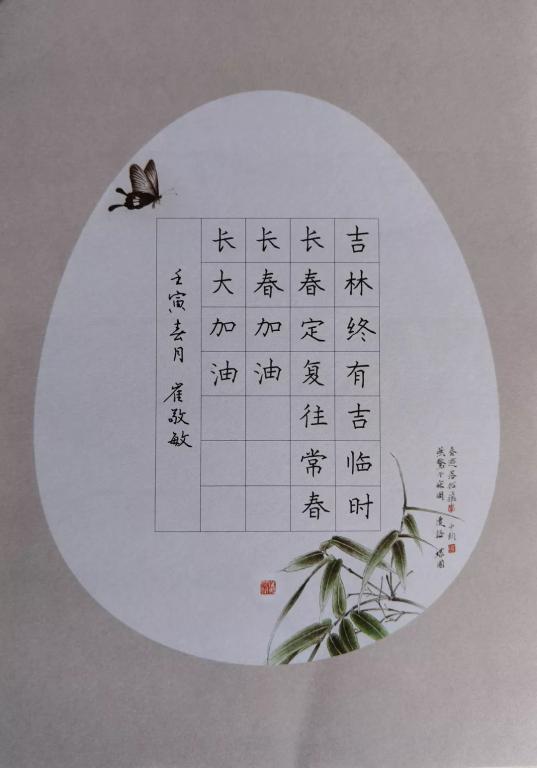 吉林终有吉临时
长春定复往常春
长春加油
长大加油
壬寅春月 崔敬敏